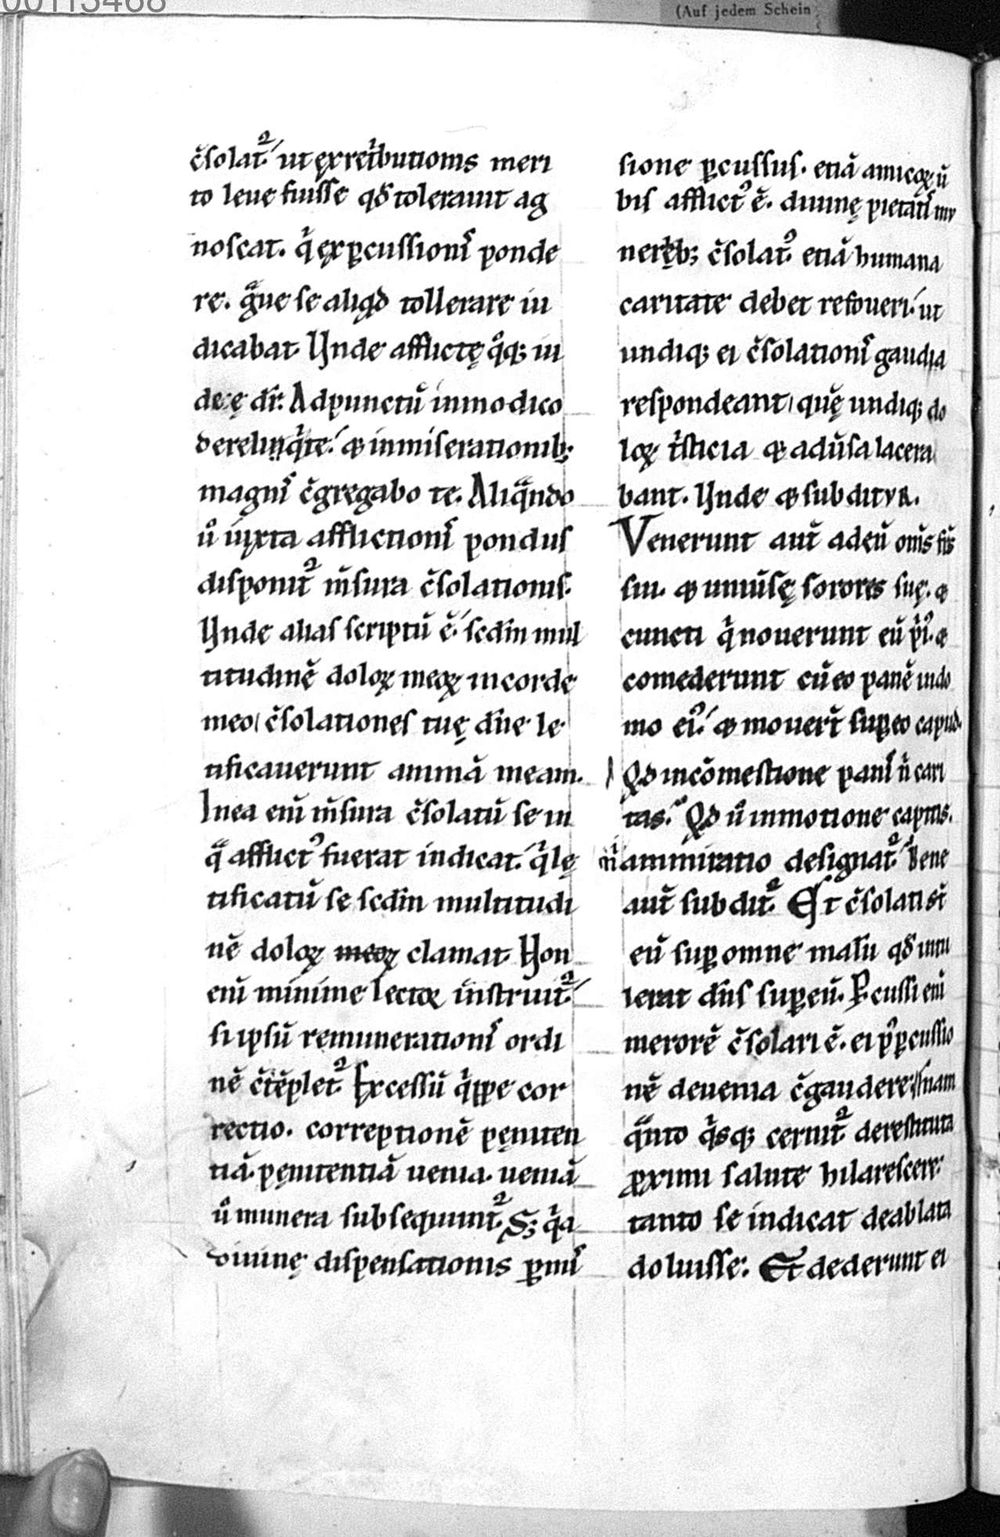 00113468
(Auf jedem Schein
c̄solat᷑ ut ex retͥbutionis meri
to leuę fuisse qđ tolerauit ag
noscat. qͥ ex ꝑcussionis ponde
re. gͣue se aliqͥd tollerare iu
dicabat Unde afflictę qͦꝗ iu
deę dr̄: Ad punctū in modico
dereliqͥ te. ⁊ in miserationibꝫ
magnis c̄gregabo te. Aliqͣndo
ū iuxta afflictionis pondus
disponit᷑ m̄sura c̄solationis.
Unde alias scriptū ē. scd̄m mul
titudinē doloꝝ meoꝝ in corde
meo c̄solationes tuę dn̄e le
tificauerunt animā meam.
In ea eni m̄sura c̄solatū se in
qͣ afflictꝰ fuerat indicat. qͥ lę
tificatū se scd̄m multitudi
nē doloꝝ meoꝝ clamat Non
eni minime lector instruit᷑
si ipsū remunerationis ordi
nē c̄tēplet᷑ Excessū qͥppe cor
rectio. correptionē pęniten
tiā. pęnitentiā uenia. ueniā
ū munera subsequunt᷑. Sꝫ qͥa
diuinę dispensationis ꝑmis
sione ꝑcussus. etiā amicoꝝ ū
bis afflictꝰ ē. diuinę pietatis mu
neribꝫ c̄solatꝰ etiā humana
caritate debet refoueri ut
undiqꝫ ei c̄solationis gaudia
respondeant quę undiqꝫ do
loꝝ tͥsticia ⁊ aduersa lacera
bant. Unde ⁊ subditur.
Venerunt aut̄ ad eū om̄s fr̄s
sui. ⁊ uniūsę sorores suę. ⁊
cuncti qͥ nouerunt eū pͥꝰ. ⁊
comederunt cū eo panē in do
mo eiꝰ ⁊ mouert̄ suꝑ eo capud.
Qđ in cōmestione panis n̄ cari
tas. Qđ ū in motione capitis.
n̄ ammiratio designat᷑ Bene
aut̄ subdit᷑ Et c̄solati st̄
eū suꝑ omne malū qđ intu
lerat dn̄s suꝑ eū. Ꝑcussi eni
merorē c̄solari ē. ei pͦ ꝑcussio
nē de uenia c̄gaudere. Nam
qͣnto qͥsqꝫ cernit᷑ de restituta
ꝓximi salute hilarescere
tanto se indicat de ablata
doluisse. Et dederunt ei